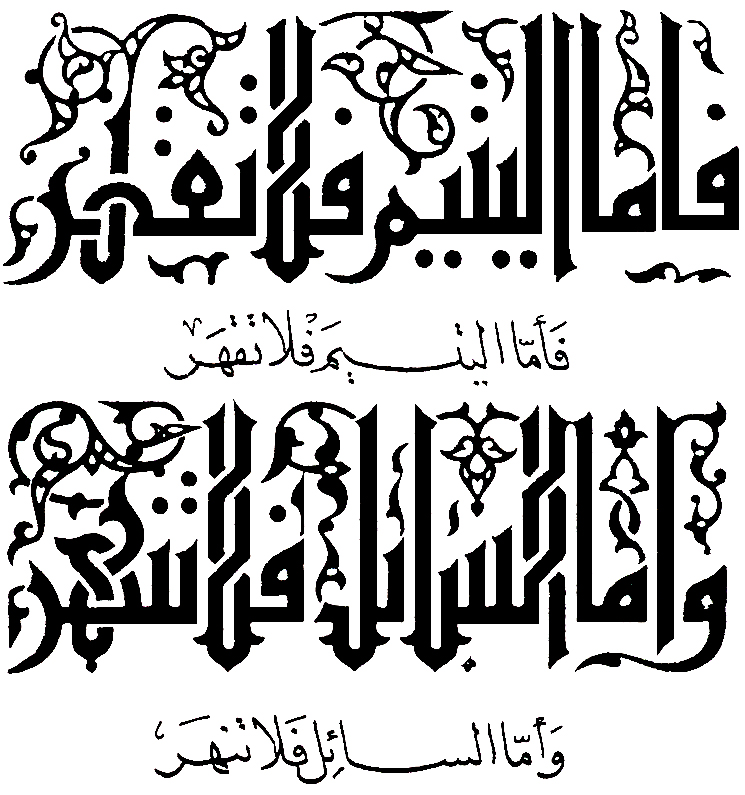 فاما اليتيم فلا تقهر
فَأَمّا اليتيمَ فَلا تَقهَرْ
واما السائل فلا تنهر
وَأَمّا السائِل فَلا تنهَرْ